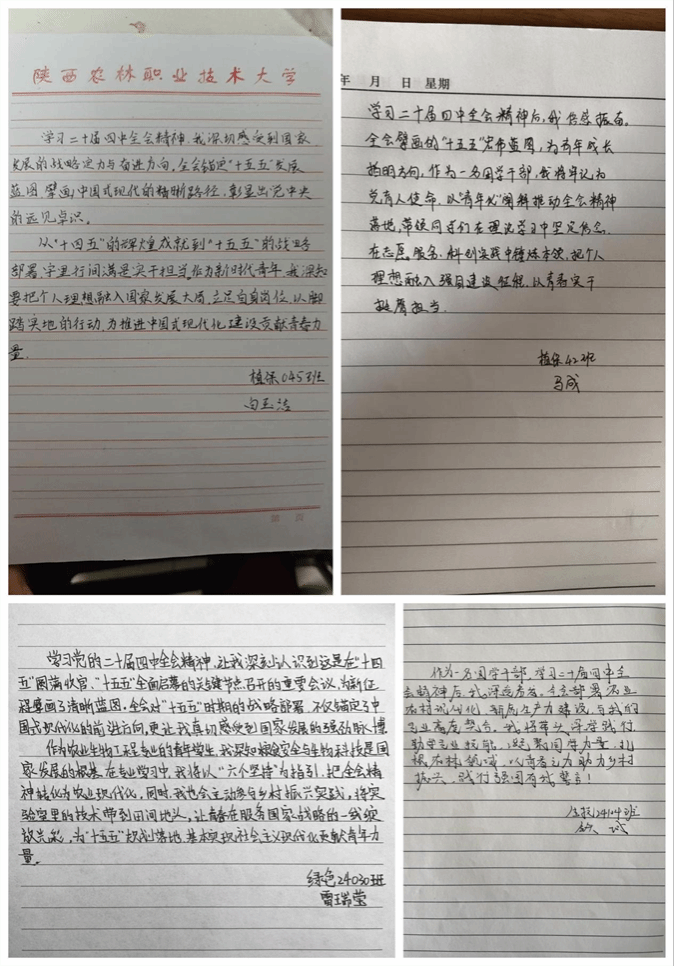 陕西农林职业技术大学
学习二十届四中全会精神,我深切感受到国家
发展的战略定力与奋进方向,全会锚定“十五五”发展
蓝图,擘画中国式现代的清晰路径,彰显出党中央
的远见卓识。
从“十四五”的辉煌成就到“十五五”的战略
部署,字里行间满是实干担当。作为新时代青年,我深知
要把个人理想融入国家发展大局,立足自身岗位,以脚
踏实地的行动,为推进中国式现代化建设贡献青春力
量.
植保045班
白玉洁
第 页
年 月 日 星期
学习二十届四中全会精神后,我倍感振奋。
全会擘画的“十五五”宏伟蓝图,为青年成长
指明方向,作为一名团学干部,我将牢记为
党育人使命,以“青年化”阐释推动全会精神
落地,带领同学们在理论学习中坚定信念.
在志愿服务、科创实践中锤炼本领,把个人
理想融入强国建设征程,以青春实干
挺膺担当.
植保42班
马成
学习党的二十届四中全会精神,让我深刻认识到这是在“十四
五”圆满收官、“十五五”全面启幕的关键节点召开的重要会议,为新征
程擘画了清晰蓝图。全会对“十五五”时期的战略部署,不仅锚定了中
国式现代化的前进方向,更让我真切感受到国家发展的强劲脉搏
作为农业生物工程专业的青年学生,我深知粮食安全与生物科技是国
家发展的根基。在专业学习中,我将以“六个坚持”为指引,把全会精
神转化为农业现代化,同时,我也会主动参与乡村振兴实践,将
实验室里的技术带到田间地头,让青春在服务国家战略的一线绽
放光彩,为“十五五”规划落地、基本实现社会主义现代化贡献青年力
量。
绿色24030班
雷瑞莹
作为一名团学干部,学习二十届四中全
会精神后,我深受启发。全会部署农业
农村现代化、新质生产力建设,与我的
专业高度契合。我将带头深学践行,
勤学专业技能,凝聚同伴力量,扎
根农林领域,以青春之力助力乡村
振兴,践行强国有我誓言!
生技24104班